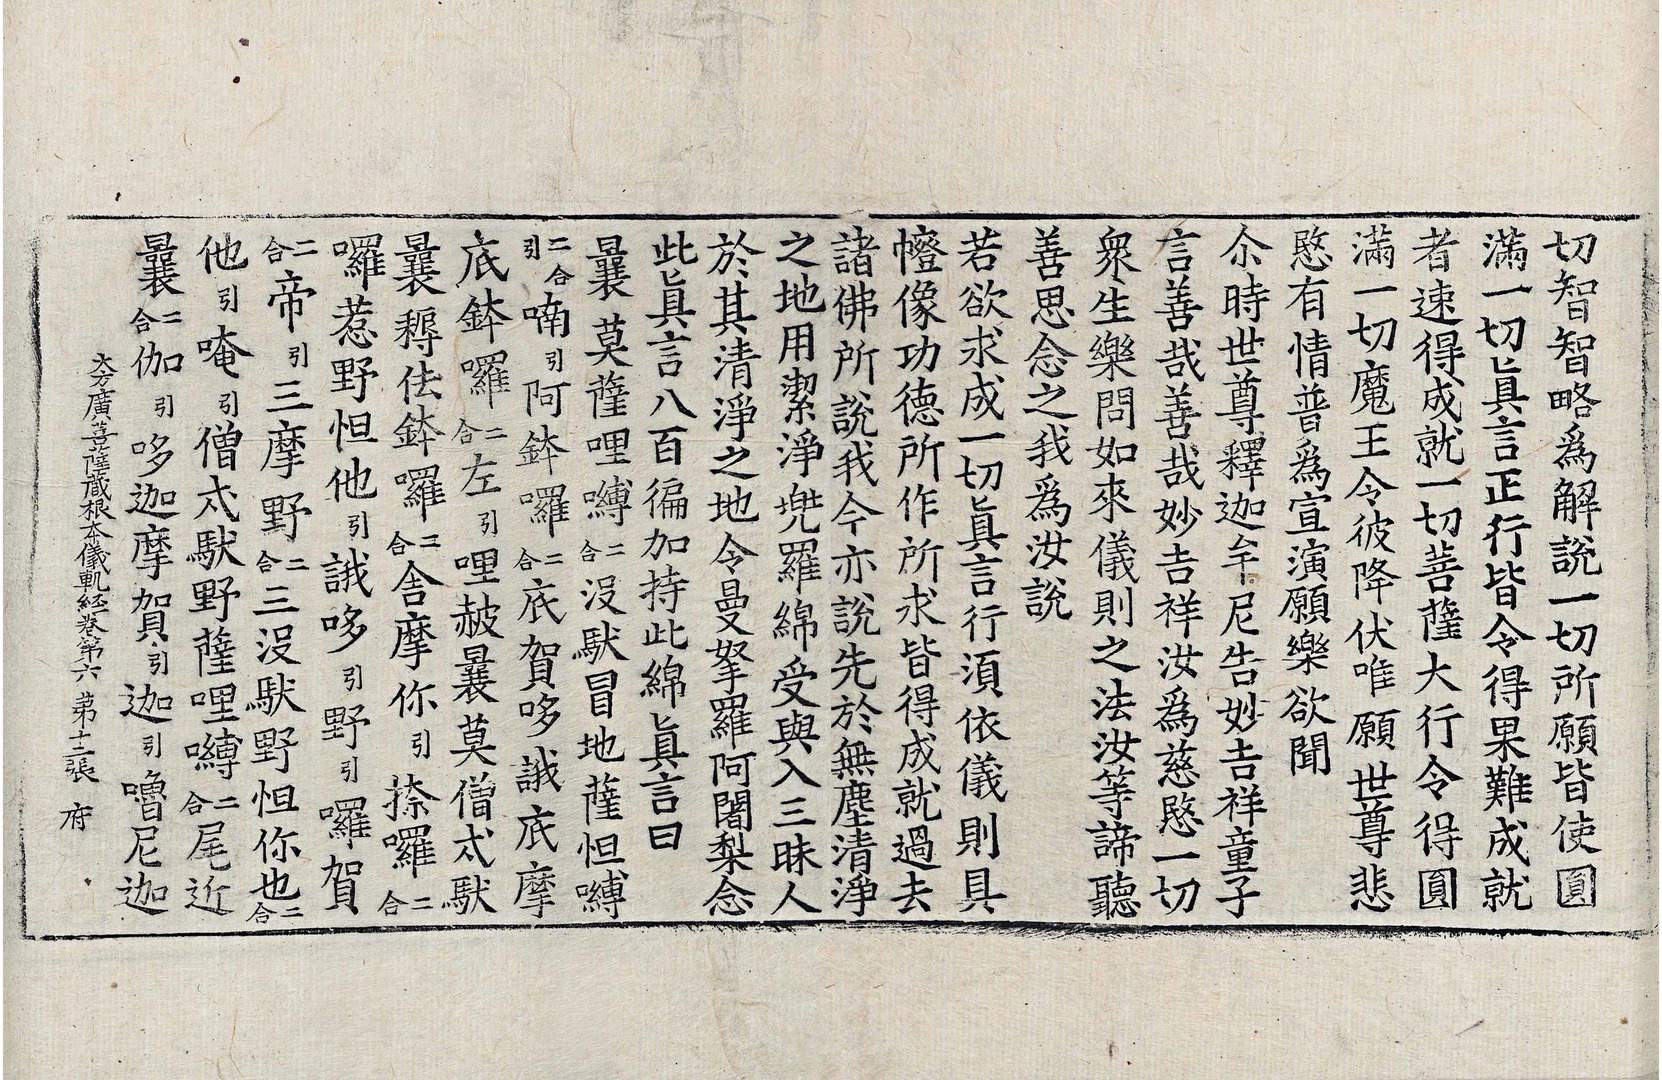 切智智略爲解說一切所願皆使圓
滿一切眞言正行皆令得果難成就
者速得成就一切菩薩大行令得圓
滿一切魔王令彼降伏唯願世尊悲
愍有情普爲宣演願樂欲聞
尒時世尊釋迦牟尼告妙吉祥童子
言善哉善哉妙吉祥汝爲慈愍一切
衆生樂問如來儀則之法汝等諦聽
善思念之我爲汝說
若欲求成一切眞言行須依儀則具
㡧像功德所作所求皆得成就過去
諸佛所說我今亦說先於無塵清淨
之地用潔淨兠羅綿受與入三昧人
於其清淨之地令曼拏羅阿闍梨念
此眞言八百徧加持此綿眞言曰
曩莫薩哩嚩二合沒馱冒地薩怛嚩
二合引喃引阿鉢囉二合底賀哆誐底摩
底鉢囉二合左引哩赧曩莫僧忒馱
曩穪佉鉢囉二合舍摩你引捺囉二合
囉惹野怛他引誐哆引野引囉賀
二合帝引三摩野二合三沒馱野怛你也二合
他引唵引僧忒馱野薩哩嚩二合尾近
曩二合伽引哆迦摩賀引迦引嚕尼迦
大方廣菩薩藏根本儀軌經卷第六 苐十二張 府